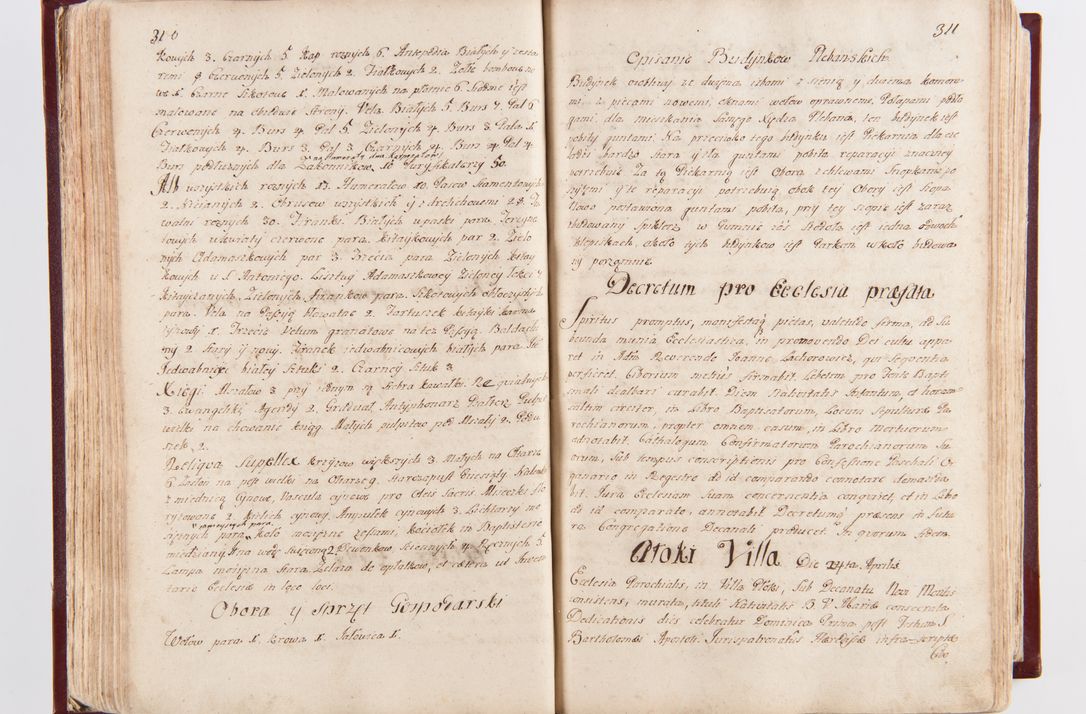 310
kowych 3. Czarnych 5. Kap roznych 6. Antepedia Białych y
remi 8 Czerwonych 5. Zielonych 2. Fiałkowych 2. Zołte
we 1. Czarne Sekotowe 1. Malowanych na płotnie 6. Godne iest
malowane na obiedwie strony. Vela Białych 5. Burs 7. Pal 6
Czerwonych 4. Burs 4. Pal 5. Zielonych 4. Burs 3. Pala 1.
Fiałkowych 4. Burs 3. Pal 3. Czarnych 4. Burs 4. Pal
Burs podłuznych dla Zakonnikow 10. Puryfikaterzy 50.
Alb wszystkich roznych 13. Humerałow 10. Pasow
2. Niciannych 2. Obrusow wszystkich y z 28.
walni roznych 30. Firanki Białych w paski para.
towych w kwiaty czerwone para. kitaykowych par 2. Zielo
nych Adamaszkowych par 3. Trzecia para Zielonych kitay
kowych u S. Antoniego. Adamaszkowey Zieloney
Zielonych, firankow para.
para. Vela na Passyą 2.
1. Trzecie Velum granatowe na tez Passyą. Baldach
my 2. Stary y nowy. Fronek iedwabnicowych białych para
Jedwabnicy białey Sztuki 2. Czarney Sztuk 3
Xięgi. Mszałow 3 przy iednym 4 Srebra kawałki. Requialnych
3. Ewangeliki Agendy 2. Graduał, Antyphonarz Psałterz
wielki na chowanie ksiąg. Małych pulpitow pod Mszały 2. Podu
szek 2.
Reliqva Supellex krzyzow większych 3. Małych na Ołtarze
6. na post wielki na Ołtarze 9.
z miednicą Cynowe, Vascula cynowe pro Oleis Sacris
2. Kielich cynowy. Ampułek cynowych 3. Lichtarzy mo
sięznych para. in Baptisterio
miedziany 1 na wodę Swięconą 2 Dzwonkow Sciennych 4 Ręcznych 5.
Lampa mosięzna Stara Zelaza do opłatkow, et cætera ut Inven
tario Ecclesiæ in loco loci.
Obora y Sprzęt Gospodarski
Wołow para 1. Krowa 1. Jałowica 1.
311
Opisanie Budynkow Plebańskich
Budynek osobliwy ze dwiema izbami z sienią y dwiema komora
mi z piecami nowemi, oknami w ołow oprawnemi, Pułapami podło
gami, dla mieszkania samego Xiędza Plebana, ten budynek iest
pobity guntami. Na przeciwko tego budynku iest Piekarnia dla cze
ladzi bardzo stara y zła guntami pobita reparacyi znaczney
potrzebuie. Za tą Piekarnią iest Obora z chlewami Snopkami po
szytemi y te reparacyi potrzebuią obok tey Obory iest Szopa
Nowo postawiona guntami pobita, przy tey szopie iest zaraz
budowany Spiklerz w Gumnie zaś Stodoła iest iedna o dwoch
Klepiskach, około tych budynkow iest Parkan w koło budowa
ny porządnie
Decretum pro Ecclesia præfata
Spiritus promptus, manifesta pietas, valetudo firma, ad Su
beunda munia Ecclesiastica, in promovendo Dei cultu appa
ret in Adm Reverendo Joanne Lachorowicz, qui Sequentia
perficiet. Ciborium melius firmabit. Lebetem pro Fonte Bapti
smali dealbari curabit. Diem Nativitatis Infantum, et horam
saltim circiter, in Libro Baptisatorum, Locum Sepulturæ Pa
rochianorum, propter omnem casum, in Libro Mortuorum
adnotabit. Cathalogum Confirmatorum Parochianorum Su
orum, Sub tempus conscriptionis pro Confessione Paschali Or
ganario in Regestro ad id comparando connotare demanda
bit. Jura Ecclesiam Suam concernentia conquiret, et in Libro
ad id comparato, annotabit. Decretumq præsens in futu
ra Congregatione Decanali producet. In quorum fidem.
Płoki Villa Die 24ta Aprilis
Ecclesia Parochialis, in Villa Płoki, Sub Decanatu Novi Montis
consistens, murata, tituli Nativitatis B. V. Mariæ consecrata
Dedicationis dies celebratur Dominica Prima post Festum S.
Bartholomæi Apostoli. Jurispatronatus Hæredissæ infra-scriptæ